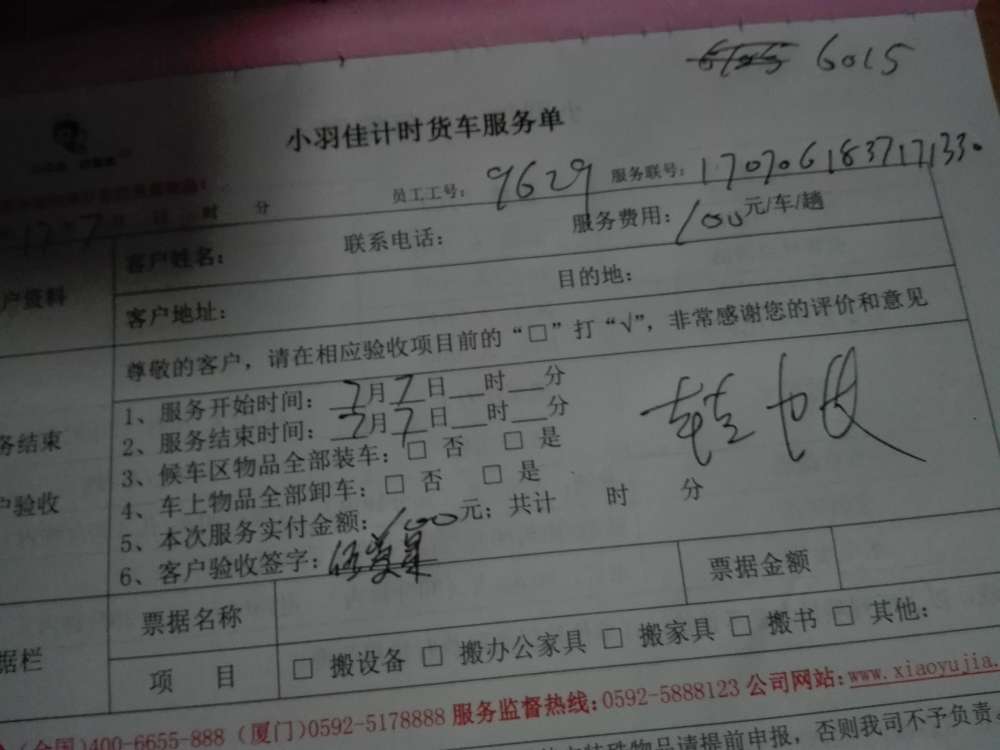 6015
小羽佳计时货车服务单
员工工号: 9629 服务联号: 170706183717133
17 7 时 分
客户姓名: 联系电话: 服务费用: 100元/车/趟
户资料
客户地址: 目的地:
尊敬的客户，请在相应验收项目前的“□”打“√”，非常感谢您的评价和意见
1、服务开始时间: 7月7日__时__分
2、服务结束时间: 7月7日__时__分
务结束
3、候车区物品全部装车: □ 否 □ 是
户验收
4、车上物品全部卸车: □ 否 □ 是
5、本次服务实付金额: 100元; 共计 时 分
6、客户验收签字:
票据名称 票据金额
据栏
项 目 □ 搬设备 □ 搬办公家具 □ 搬家具 □ 搬书 □ 其他:
(全国)400-6655-888 (厦门)0592-5178888 服务监督热线:0592-5888123 公司网站:www.xiaoyujia.
特殊物品请提前申报，否则我司不予负责。